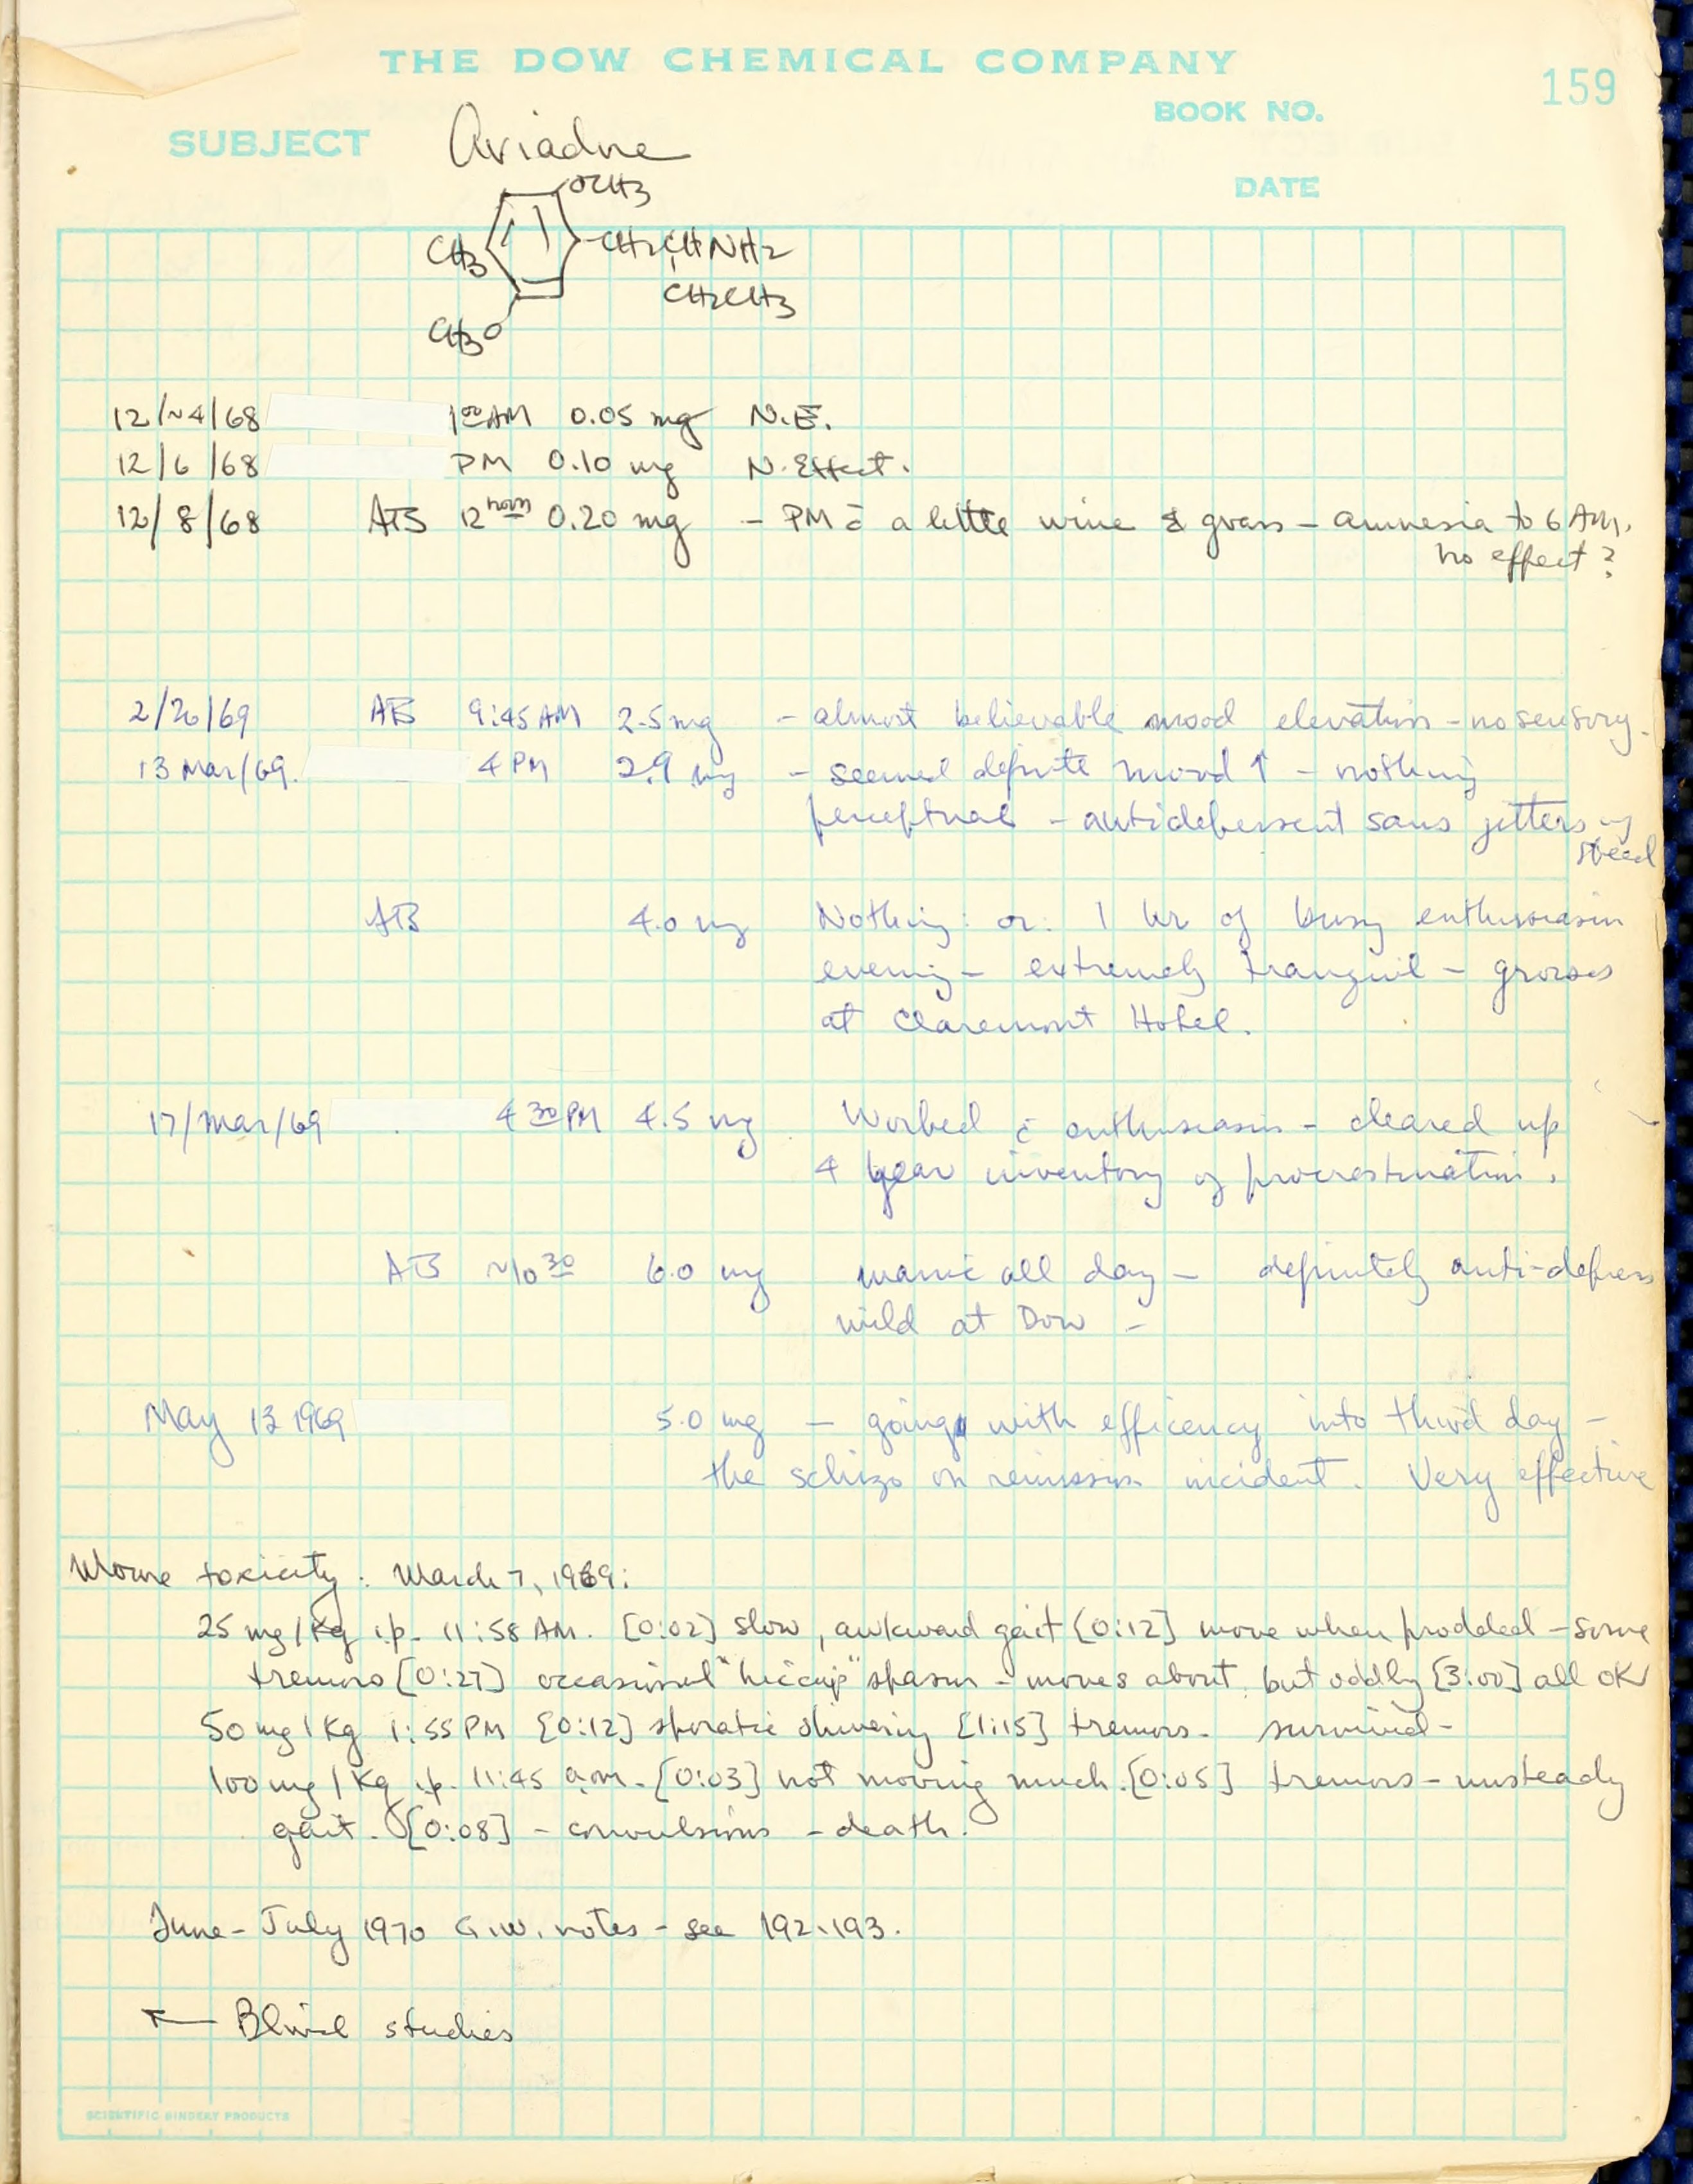 THE DOW CHEMICAL COMPANY
159
BOOK NO.
SUBJECT Ariadne
DATE
OCH3
CH3 CH2CHNH2
CH2CH3
CH3O
12/~4/68 1 00 AM 0.05 mg N.E.
12/6/68 PM 0.10 mg N. Effect.
12/8/68 ATS 12 noon 0.20 mg - PM c̄ a little wine & grass - amnesia to 6 AM.
no effect?
2/20/69 ATS 9:45 AM 2.5 mg - almost believable mood elevation - no sensory.
13 Mar/69. 4 PM 2.9 mg - seemed definite mood ↑ - nothing
perceptual - antidepressent sans jitters of
speed
ATS 4.0 mg Nothing: or: 1 hr of busy enthusiasm
evening - extremely tranquil -
at Claremont Hotel.
17/Mar/69 4 30 PM 4.5 mg Worked c̄ enthusiasm - cleared up
4 year inventory of procrastination.
ATS ~10 30 6.0 mg manic all day - definitely anti-depress
wild at Dow -
May 13 1969 5.0 mg - going with efficency into third day -
the schizo in remission incident. Very effective
Mouse toxicity: March 7, 1969:
25 mg/Kg i.p. 11:58 AM. [0:02] slow, awkward gait [0:12] move when prodded - some
tremors [0:27] occasional "hiccup" spasm - moves about, but oddly [3:00] all OK
50 mg/Kg 1:55 PM [0:12] sporatic shivering [1:15] tremors. survived -
100 mg/Kg i.p. 11:45 a.m. [0:03] not moving much. [0:05] tremors - unsteady
gait. [0:08] - convulsions - death.
June - July 1970 G.W. notes - see 192, 193.
← Blind studies
SCIENTIFIC BINDERY PRODUCTS